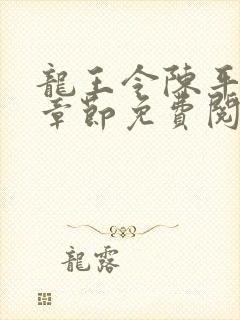 龍王令陳平
章節免費閱
龍露